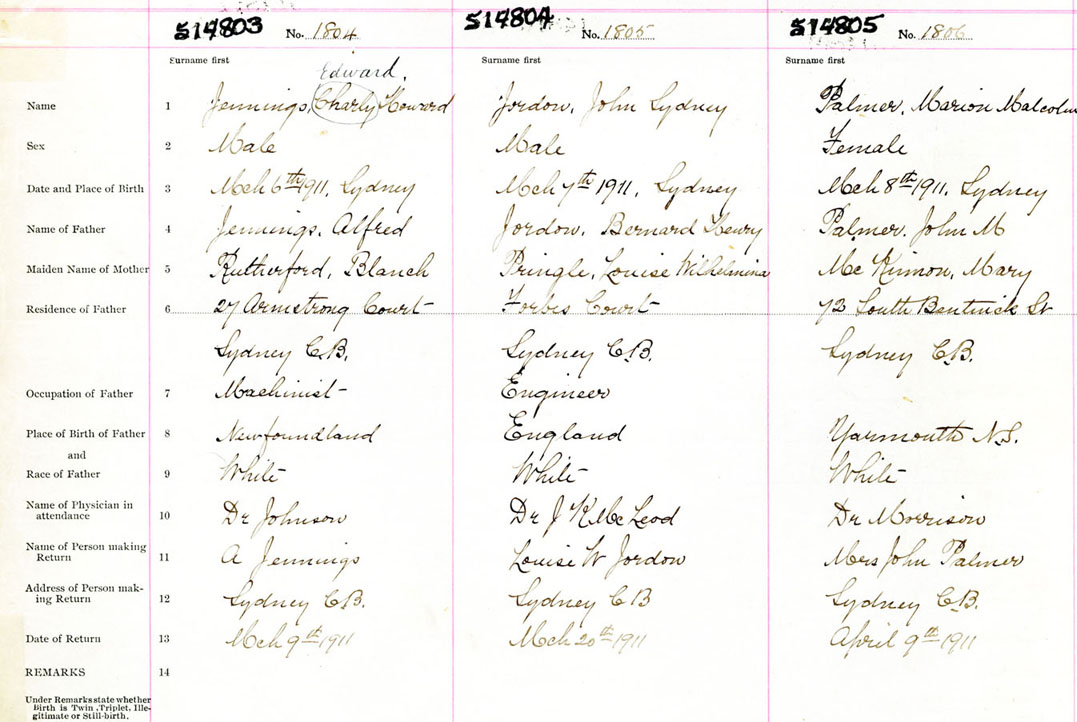 S14803 No. 1804 S14804 No. 1805 S14805 No. 1806
Surname first Surname first Surname first
Edward,
Name 1 Jennings, Charly Howard Jordon, John Sydney Palmer, Marion Malcolm
Sex 2 Male Male Female
Date and Place of Birth 3 Mch 6th 1911, Sydney Mch 7th 1911, Sydney Mch 8th 1911, Sydney
Name of Father 4 Jennings, Alfred Jordon, Bernard Henry Palmer, John M
Maiden Name of Mother 5 Rutherford, Blanch Pringle, Louise Wilhelmina Mc Kinnon, Mary
Residence of Father 6 27 Armstrong Court Forbes Court 72 South Bentinck St
Sydney C.B. Sydney C.B. Sydney C.B.
Occupation of Father 7 Machinist Engineer
Place of Birth of Father 8 Newfoundland England Yarmouth N.S.
and
Race of Father 9 White White White
Name of Physician in
attendance 10 Dr Johnson Dr J K McLeod Dr Morrison
Name of Person making
Return 11 A Jennings Louise W Jordon Mrs John Palmer
Address of Person mak-
ing Return 12 Sydney C.B. Sydney C B Sydney C.B.
Date of Return 13 Mch 9th 1911 Mch 20th 1911 April 9th 1911
REMARKS 14
Under Remarks state whether
Birth is Twin, Triplet, Ille-
gitimate or Still-birth.